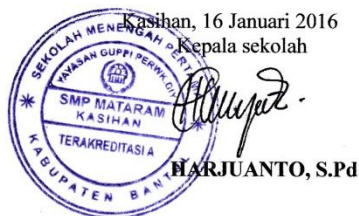 Kasihan, 16 Januari 2016
Kepala sekolah
SEKOLAH MENENGAH PERTAMA
YAYASAN GUPPI PERWK.DIY
SMP MATARAM
KASIHAN
TERAKREDITASI A
KABUPATEN BANTUL
HARJUANTO, S.Pd